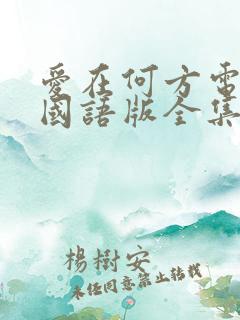 愛在何方電
國語版全集
楊樹安
未经同意禁止转载